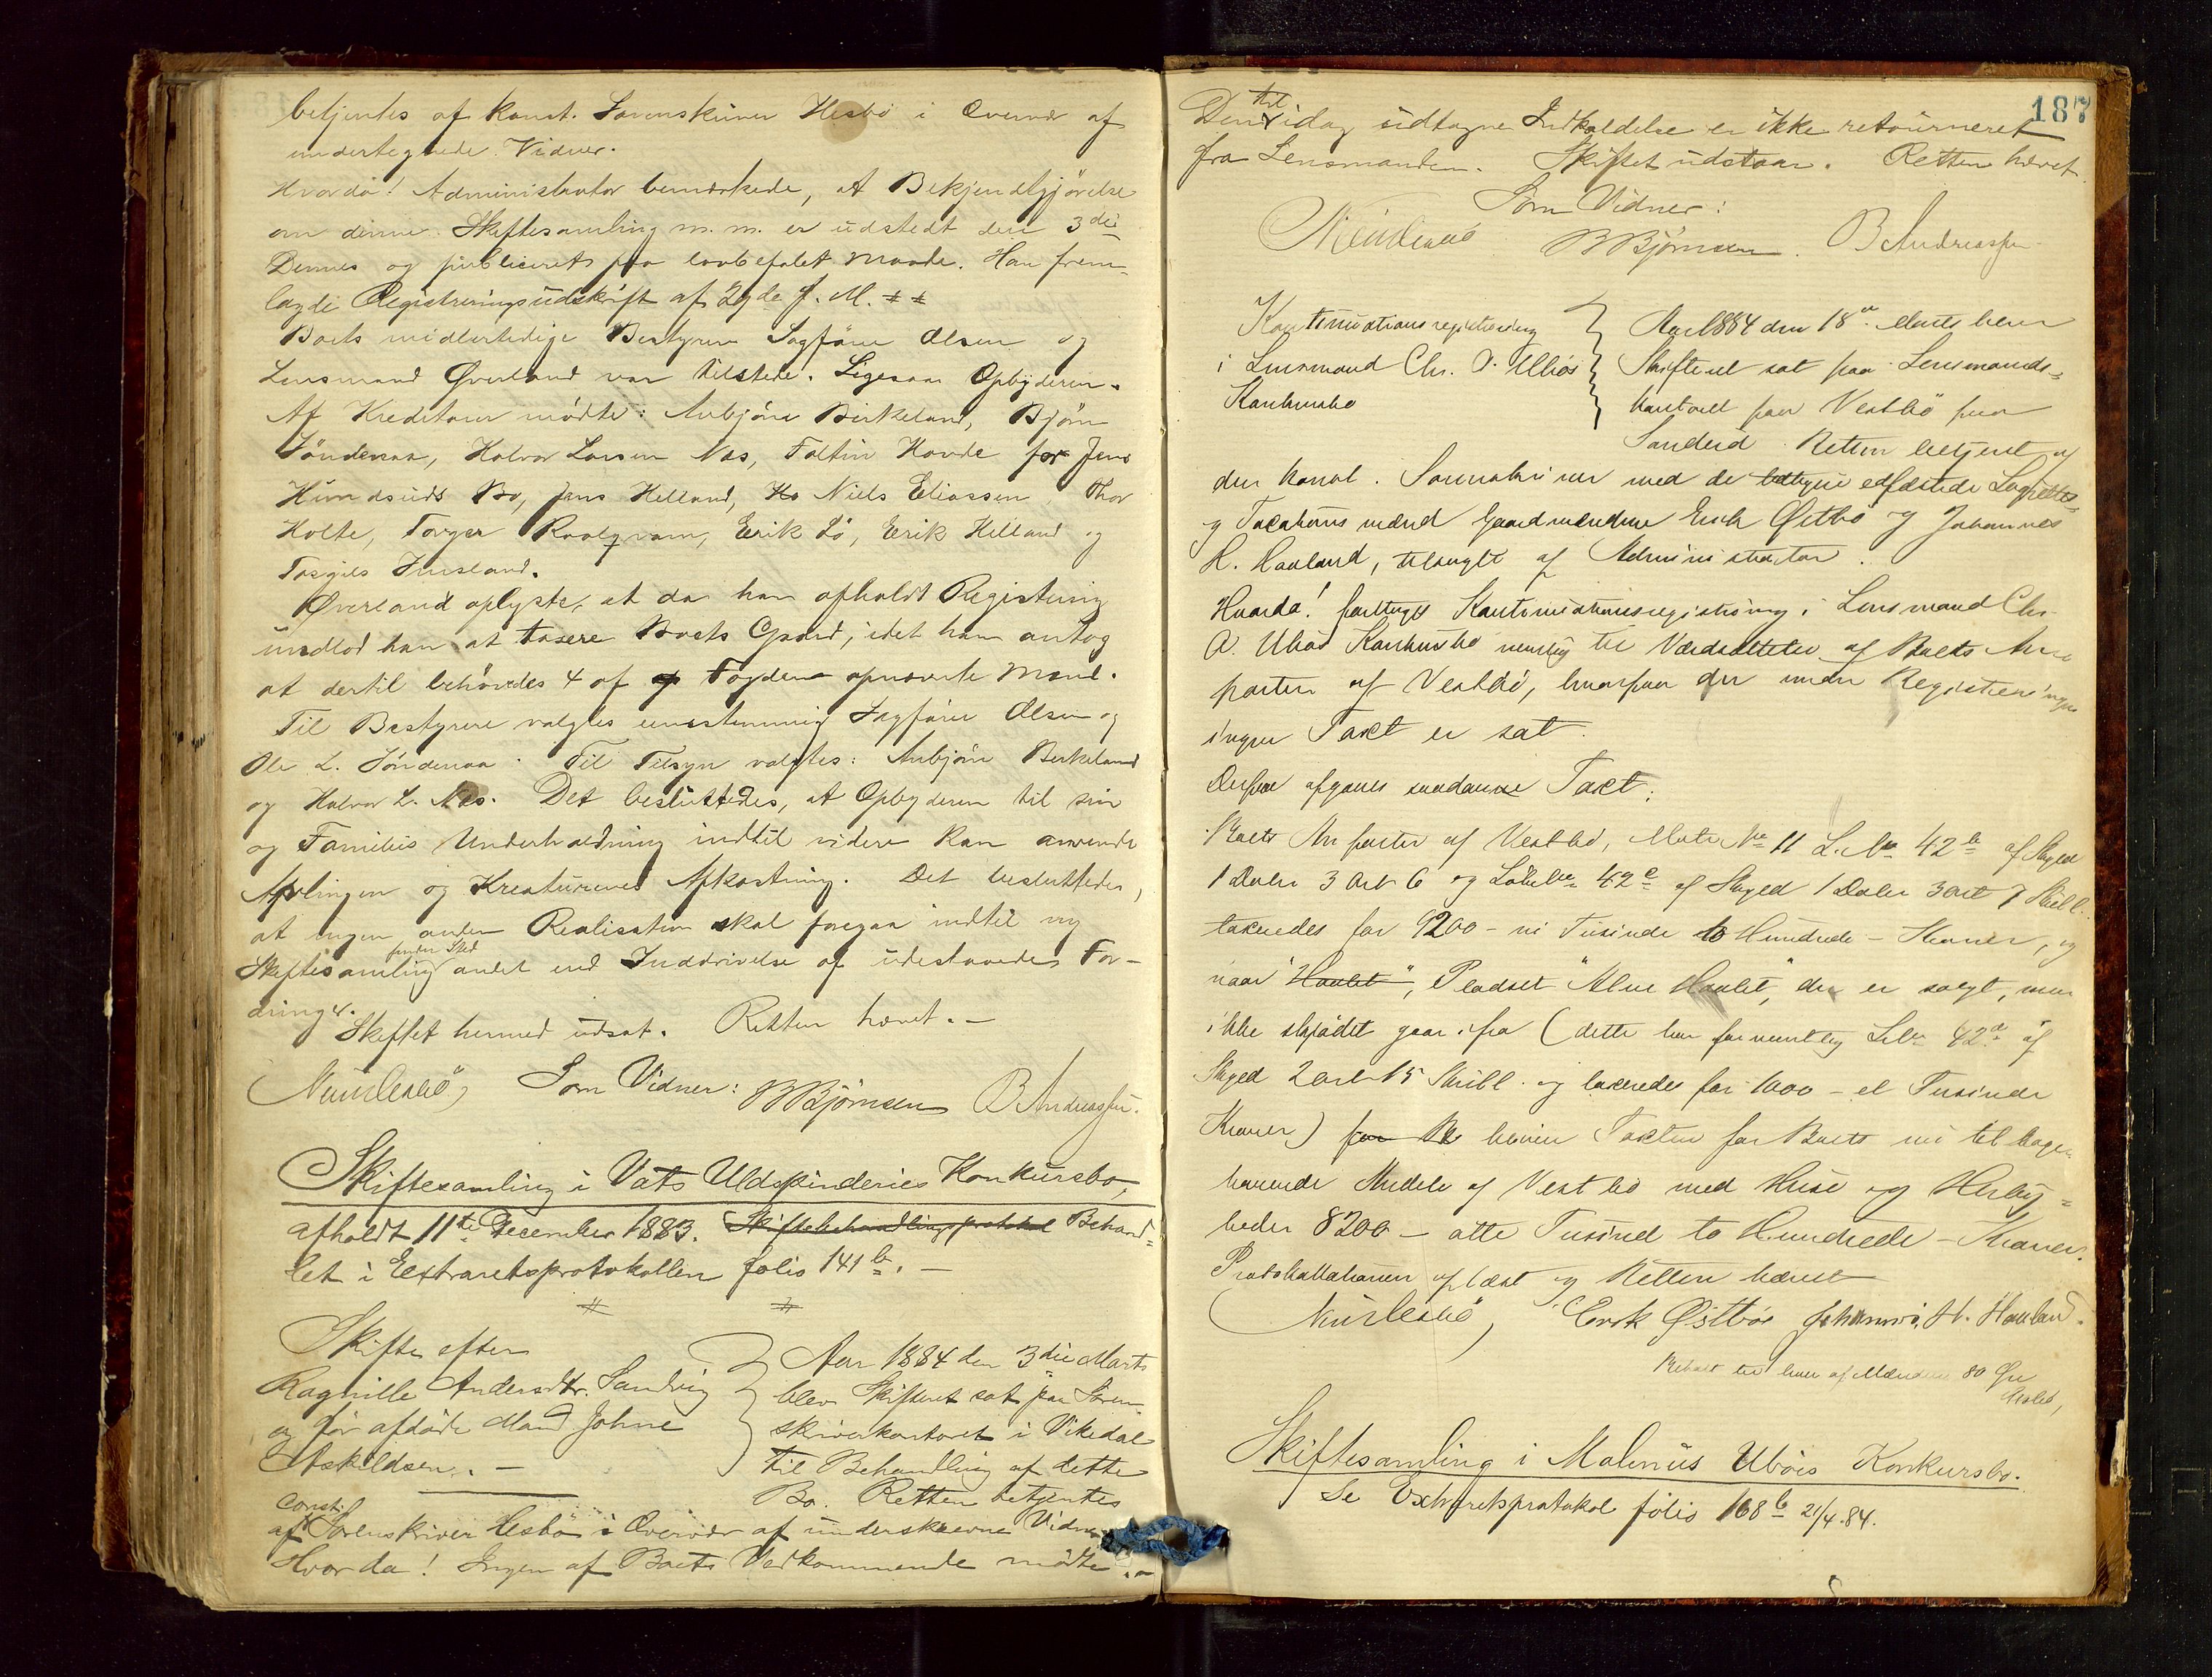 betjentes af konst. Sorenskriver Hesbö i Overvær af
undertegnede Vidner.
Hvorda! Administrator bemærkede, at Bekjendtgjörelse
om denne Skiftesamling m. m. er udstedt den 3die
Dennes og publiceret paa lovbefalet Maade. Han frem-
lagde Registreringsudskrift af 29de f. M.
Boets midlertidige Bestyrer Sagförer Olsen og
Lensmand Øverland var tilstede. Ligesaa Opbyderen.
Af Kreditorer mödte: Anbjörn Birkeland, Björn
Söndenaa, Halvor Larsen Næs, Faltin Hovde for Jens
Bö, Jens Helland, Niels Eliassen, Thor
Holte, Torger Raalqvam, Erik Lö, Erik Helland og
Torgils
Øverland oplyste, at da han afholdt Registrering
undlod han at taxere Boets Gaard, idet han antog
at dertil behövedes 4 af Fogden opnævnte Mænd.
Til Bestyrere valgtes eenstemmig Sagförer Olsen og
Ole L. Söndenaa. Til Tilsyn valgtes: Anbjörn Birkeland
og Halvor L. Næs. Det besluttedes, at Opbyderen til sin
og Families Underholdning indtil videre kan anvende
Avlingen og Kreaturenes Afkastning. Det besluttedes,
at ingen anden Realisation skal foregaa indtil ny
Skiftesamling finder Sted andet end Inddrivelse af udestaaende For-
dringer.
Skiftet hermed udsat. Retten hævet.-
Som Vidner: B Björnsen B Andreassen.
Skiftesamling i Vats Uldspinderies Konkursbo,
afholdt 11te December 1883. Skiftebehandlingsprotokol Behand-
let i Extraretsprotokollen folio 141 b. -
Skifte efter
Ragnille Andersdtr. Sandvig
og för afdöde Mand Johne
Askildsen. -
Aar 1884 den 3die Marts
blev Skifteret sat paa Soren-
skriverkontoret i Vikedal
til Behandling af dette
Bo. Retten betjentes
af const. Sorenskriver Hesbö i Overvær af underskrevne Vidner
Hvorda! Ingen af Boets Vedkommende mödte. -
187
Den til idag udtagne Indkaldelse er ikke retourneret
fra Lensmanden. Skiftet udstaar. Retten hævet.
Som Vidner:
B Björnsen. B Andreassen
Kontinuationsregistrering
i Lensmand Chr. O. Ubøs
Konkursbo
Aar 1884 den 18de Marts blev
Skifteret sat paa Lensmands-
kontoret paa Vestbö paa
Sandeid. Retten betjent af
den konst. Sorenskriver med de edfæstede Lagrettes-
og Taxationsmænd Gaardmændene Erik Østbö og Johannes
H. Hauland, tilsagte af Administrator.
Hvorda! foretoges Kontinuationsregistrering i Lensmand Chr.
O. Ubøs Konkursbo nemlig til Værdsættelse af Boets An-
parter af Vestbö, hvorpaa der under Registreringen
ingen Taxt er sat.
Derpaa afgaves saadanne Taxt:
Boets An parter af Vestbö, Matr No 11 L. No 42 b af Skyld
1 Daler 3 Ort 6 og Löbe No 42 c af Skyld 1 Daler 3 Ort 7 Skill.
taxeredes for 9200 - ni Tusinde to Hundrede - Kroner, og
naar "Haulet", Pladset "Alne Haulet", der er solgt, men
ikke skjödet gaar ifra (dette har formentlig Lbno 42 d af
Skyld 2 Ort 15 Skill. og taxeredes for 1000 - et Tusinde
Kroner) bliver Taxten for Boets nu tilbage-
havende Andele af Vestbö med Huse og Herlig-
heder 8200 - otte Tusind to Hundrede - Kroner.
Protokollationen oplæst og Retten hævet
Erik Østbø Johannes H. Hauland.
Betalt til hver af Mændene 80 Øre
Hesbö,
Skiftesamling i Malenus Ubøes Konkursbo.
Se Extraretsprotokol folio 168 b 21/4.84.